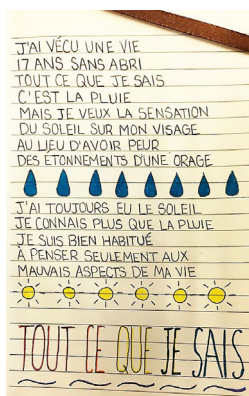 J'AI VÉCU UNE VIE
17 ANS SANS ABRI
TOUT CE QUE JE SAIS
C'EST LA PLUIE
MAIS JE VEUX LA SENSATION
DU SOLEIL SUR MON VISAGE
AU LIEU D'AVOIR PEUR
DES ÉTONNEMENTS D'UNE ORAGE
J'AI TOUJOURS EU LE SOLEIL
JE CONNAIS PLUS QUE LA PLUIE
JE SUIS BIEN HABITUÉ
À PENSER SEULEMENT AUX
MAUVAIS ASPECTS DE MA VIE
TOUT CE QUE JE SAIS